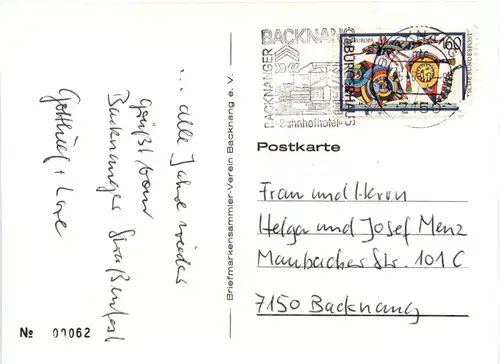 ... alle Jahre wieder
grüßt vom
Backnanger Straßenfest
Gottlieb + Lore
Nº 00062
Briefmarkensammler-Verein Backnang e. V.
BACKNANG
BACKNANGER
BÜRGERHAUS
Bahnhofhotel
7150
EUROPA
60
DEUTSCHE BUNDESPOST
Postkarte
Frau und Herrn
Helga und Josef Menz
Maubacher Str. 101 C
7150 Backnang